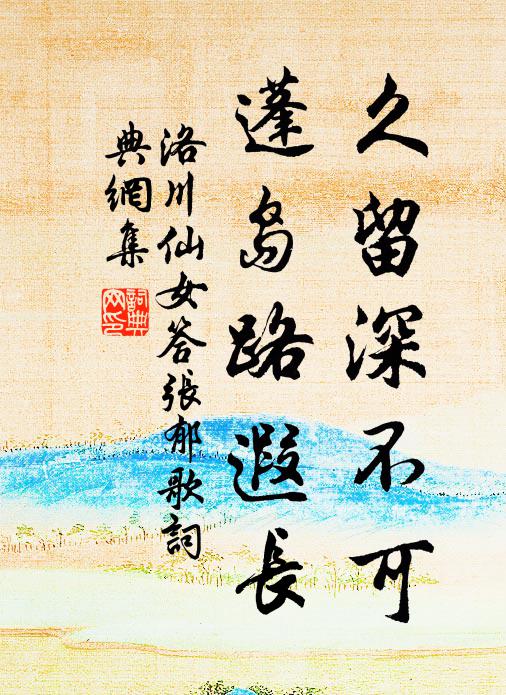 久留深不可
蓬島路遐長
洛川仙女答張郁歌詞
典網集
詞典
网印